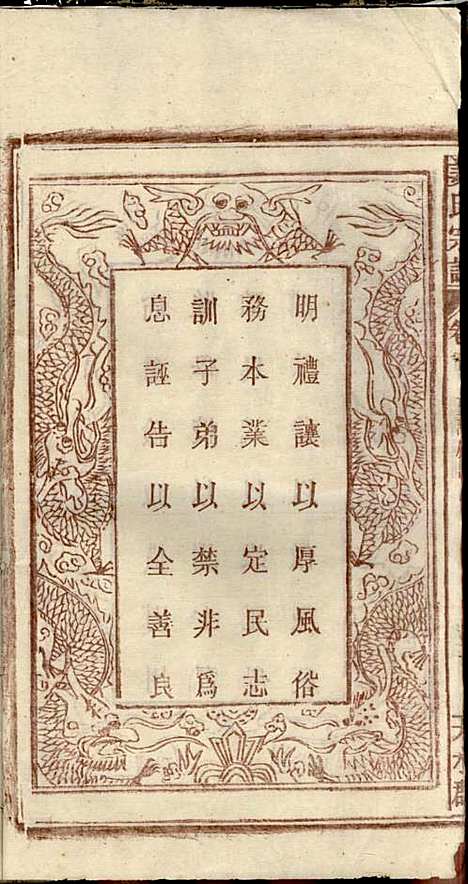 明禮讓以厚風俗
務本業以定民志
訓子弟以禁非爲
息誣告以全善良
氏宗譜